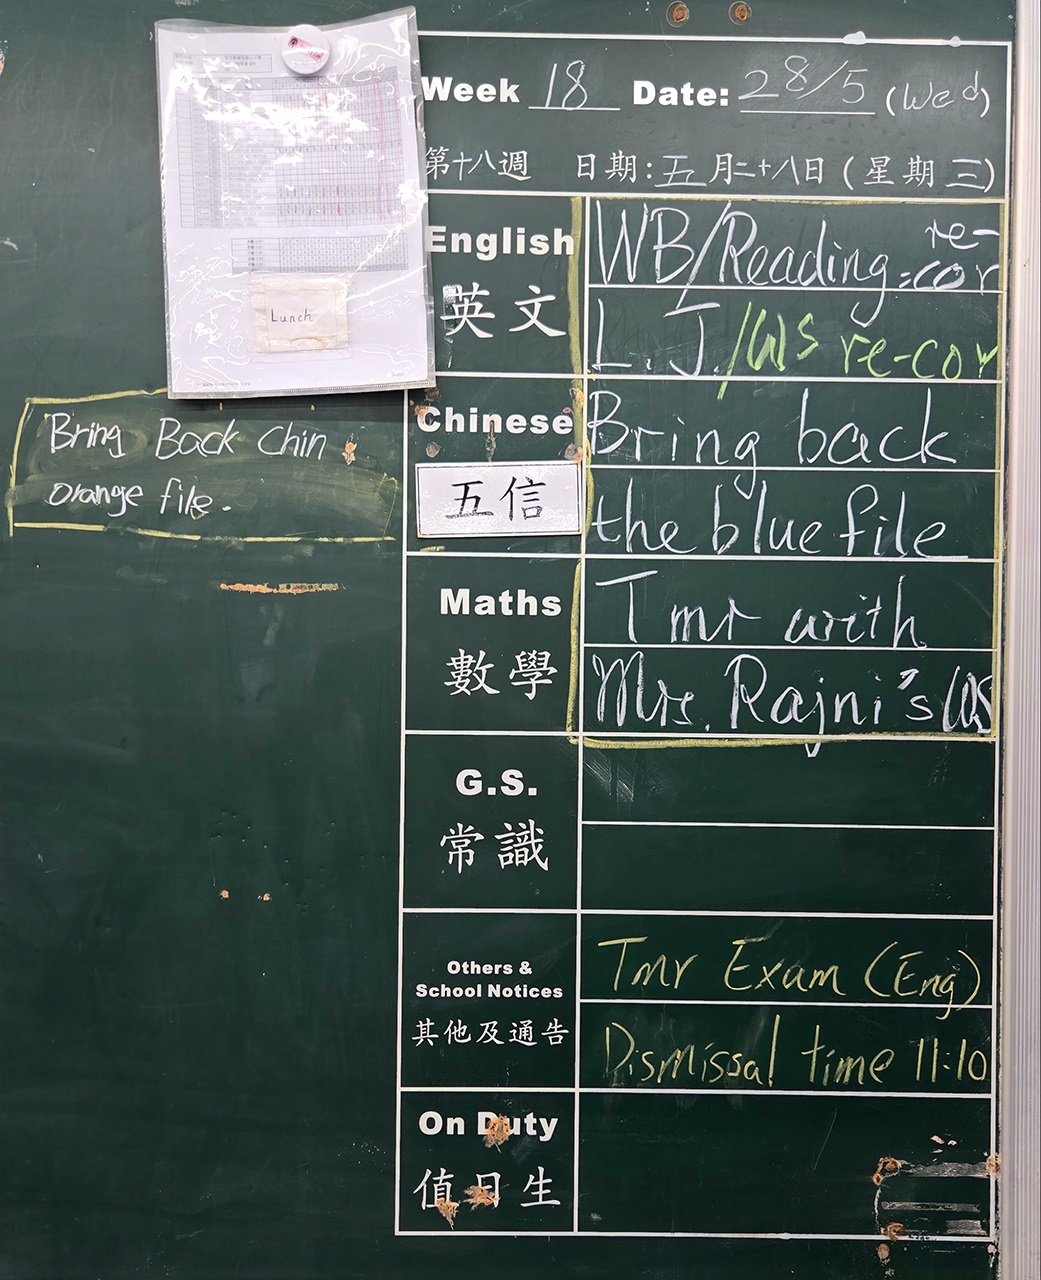 Week 18 Date: 28/5 (Wed)
第十八週 日期:五月二十八日(星期三)
English
英文
WB/Reading: re-cor
L.J./WS re-cor
Lunch
Bring Back Chin
orange file.
Chinese
五信
Bring back
the blue file
Maths
數學
Tmr with
Mrs. Rajni's WS
G.S.
常識
Others &
School Notices
其他及通告
Tmr Exam (Eng)
Dismissal time 11:10
On Duty
值日生